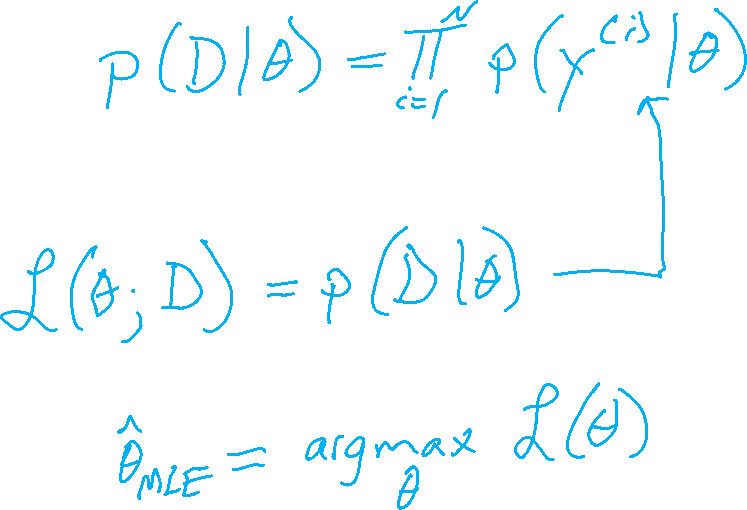 p(D|θ) = ∏_{i=1}^{N} p(y^{(i)}|θ)
ℒ(θ; D) = p(D|θ)
θ̂_{MLE} = argmax_θ ℒ(θ)